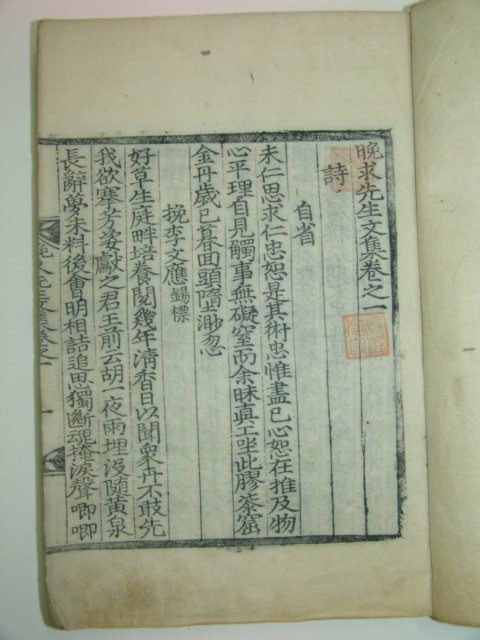 晚求先生文集卷之一
詩
自省
未仁思求仁忠恕是其術忠惟盡已心恕在推及物
心平理自見觸事無礙窒而余昧眞工坐此膠漆窟
金丹歲已暮回頭隋渺忽
挽李文應錫標
好草生庭畔培養閱幾年清香日以聞衆卉不敢先
我欲搴芳姿獻之君王前云胡一夜雨埋沒隨黃泉
長辭夢未料後會明相詰追思獨斷魂掩淚聲喞喞